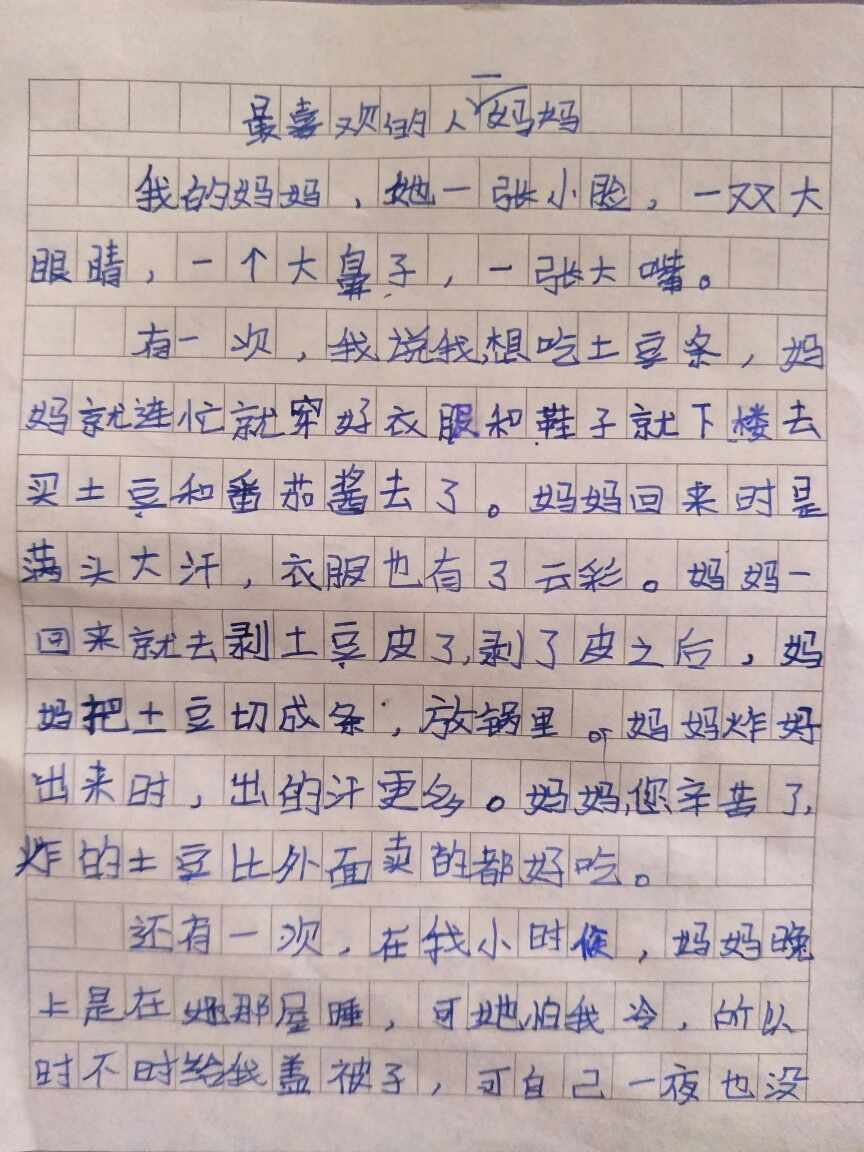 最喜欢的人—妈妈
我的妈妈，她一张小脸，一双大
眼睛，一个大鼻子，一张大嘴。
有一次，我说我想吃土豆条，妈
妈就连忙就穿好衣服和鞋子就下楼去
买土豆和番茄酱去了。妈妈回来时是
满头大汗，衣服也有了云彩。妈妈一
回来就去剥土豆皮了，剥了皮之后，妈
妈把土豆切成条，放锅里。妈妈炸好
出来时，出的汗更多。妈妈，您辛苦了，
炸的土豆比外面卖的都好吃。
还有一次，在我小时候，妈妈晚
上是在她那屋睡，可她怕我冷，所以
时不时给我盖被子，可自己一夜也没